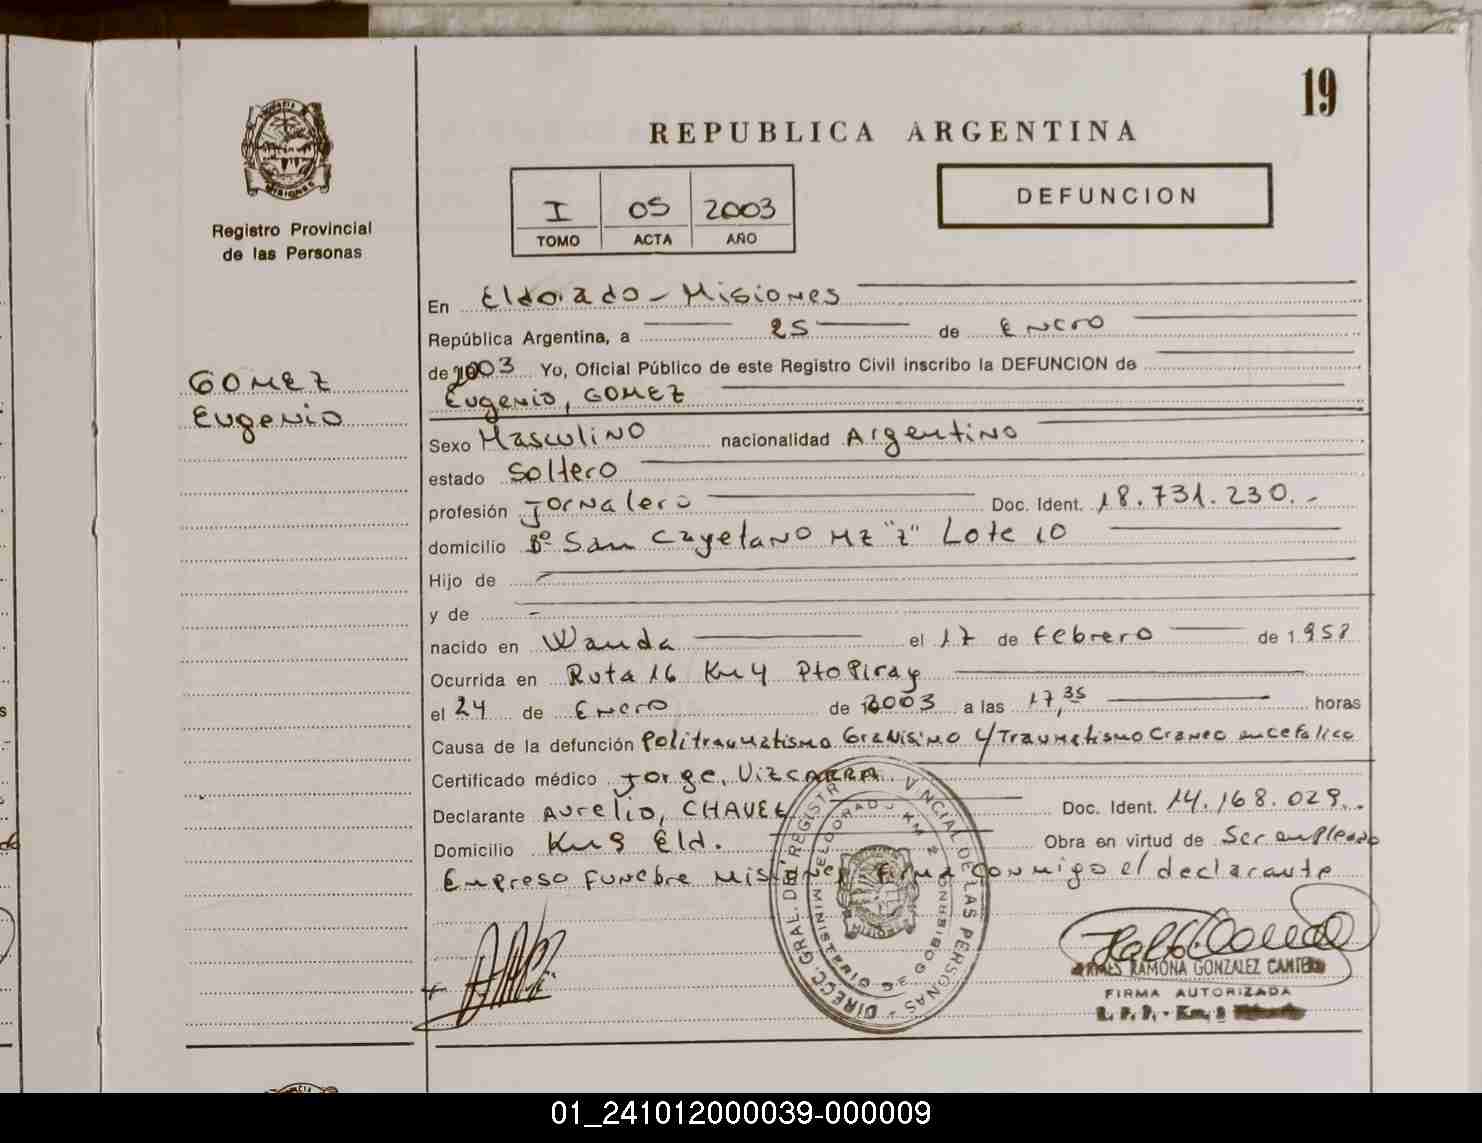 19
REPUBLICA ARGENTINA
I 05 2003
TOMO ACTA AÑO
DEFUNCION
MISIONES
Registro Provincial
de las Personas
GOMEZ
Eugenio
En Eldorado - Misiones
República Argentina, a 25 de Enero
de 2003 Yo, Oficial Público de este Registro Civil inscribo la DEFUNCION de
Eugenio, GOMEZ
Sexo Masculino nacionalidad Argentino
estado Soltero
profesión Jornalero Doc. Ident. 18.731.230.-
domicilio Bº San Cayetano Mz "Z" Lote 10
Hijo de
y de -
nacido en Wanda el 17 de Febrero de 1.957
Ocurrida en Ruta 16 Km 4 Pto Piray
el 24 de Enero de 2003 a las 17,35 horas
Causa de la defunción Politraumatismo Gravisimo c/Traumatismo Craneo encefalico
Certificado médico Jorge, VIZCARRA
Declarante Aurelio, CHAVEZ Doc. Ident. 14.168.029.-
Domicilio Km 9 Eld. Obra en virtud de Ser empleado
Empresa Funebre Misiones, Firma conmigo el declarante
DIRECC. GRAL. DEL REGISTRO PROVINCIAL DE LAS PERSONAS
MINISTERIO DE GOBIERNO
ELDORADO KM 2
RAMONA GONZALEZ CANTERO
FIRMA AUTORIZADA
R. P. P. - Km.
01_241012000039-000009